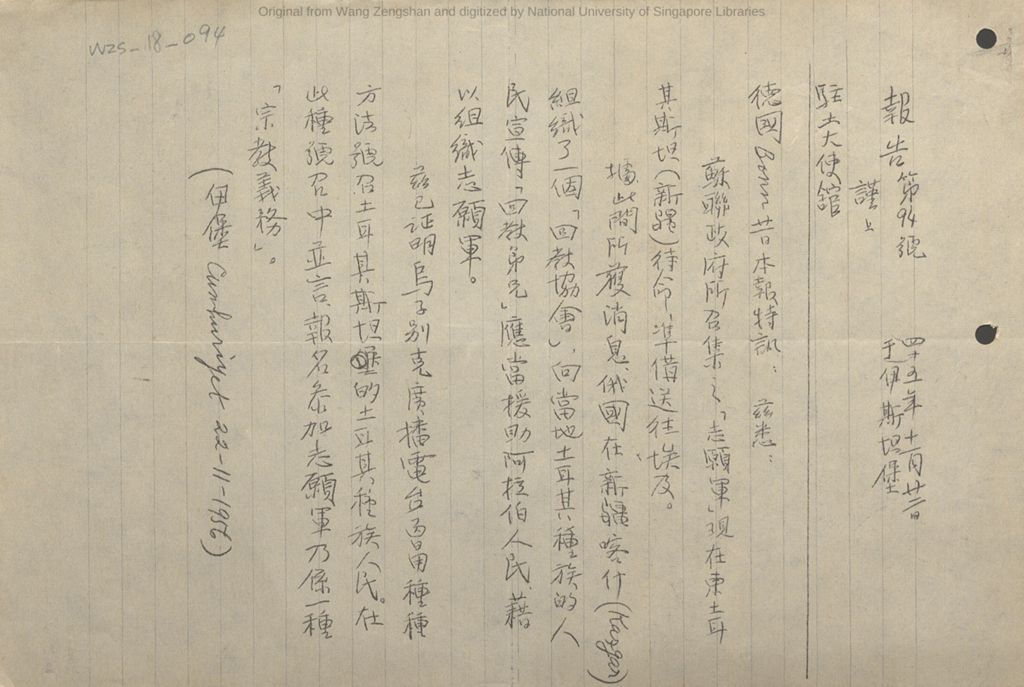 Original from Wang Zengshan and digitized by National University of Singapore Libraries
WZS_18_094
報告第94號
四十五年十一月廿二日
于伊斯坦堡
謹上
駐土大使館
德國Bonn昔日本報特訊：茲悉：
蘇聯政府所召集之「志願軍」現在東土耳
其斯坦(新疆)待命，準備送往埃及。
據此間所獲消息，俄國在新疆喀什(Kaşgar)
組織了一個「回教協會」，向當地土耳其種族的人
民宣傳「回教弟兄」應當援助阿拉伯人民，藉
以組織志願軍。
茲已証明烏子別克廣播電台正用種種
方法號召土耳其斯坦的土耳其種族人民。在
此種號召中並言，報名參加志願軍乃係一種
「宗教義務」。
(伊堡 Cumhuriyet 22-11-1956)